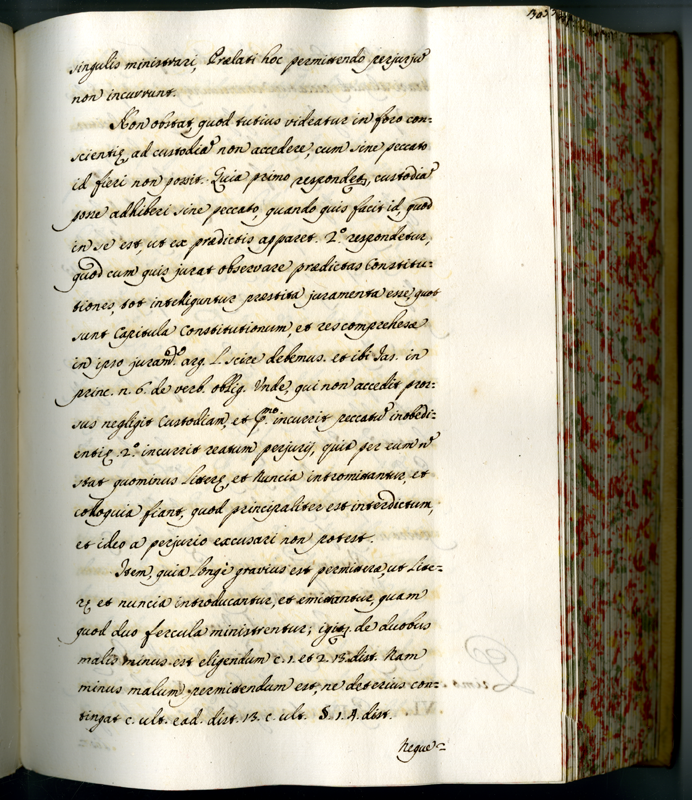 303
singulis ministrari, Prælati hoc permittendo perjuriũ
non incurrunt.
Non obstat, quod tutius videatur in foro con=
scientię, ad custodiã non accedere, cum sine peccato
id fieri non possit. Quia primo respondet, custodiã
posse adhiberi sine peccato, quando quis facit id, quod
in se est, ut ex prædictis apparet. 2.º respondetur,
quod cum quis jurat observare prædictas Constitu=
tiones, tot intelliguntur præstita juramenta esse, quot
sunt Capitula Constitutionum, et res comprehensæ
in ipso juram.º arg. L. scire debemus. et ibi Jas. in
princ. n. 6. de verb. oblig. Unde, qui non accedit pror=
sus negligit Custodiam, et P.mo incurrit peccatũ inobedi=
entię. 2.º incurrit reatum perjurij, quia per eum nõ
stat quominus Literę, et Nuncia intromittantur, et
colloquia fiant, quod principaliter est interdictum,
et ideo a perjurio excusari non potest.
Item, quia longè gravius est permittere, ut Lite=
rę, et nuncia introducantur, et emittantur, quam
quod duo fercula ministrentur; igitur de duobus
malis minus est eligendum c. 1. et 2. 13. dist. Nam
minus malum permittendum est, ne deterius con=
tingat c. ult. ead. dist. 13. c. ult. §. 1. 4. dist.
Neque=